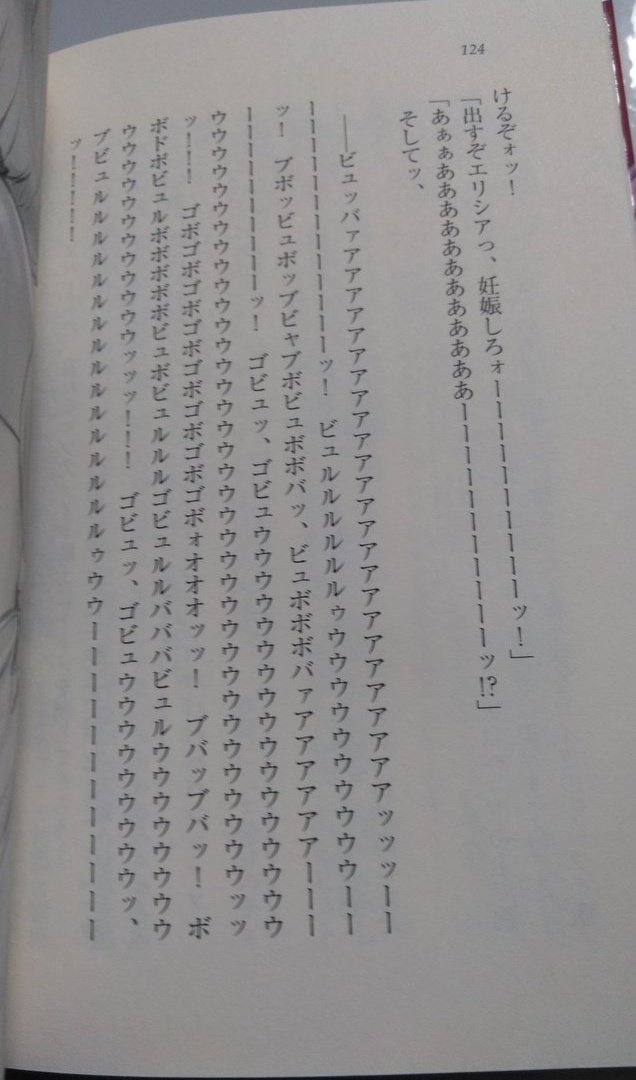 124
けるぞォッ！
「出すぞエリシアっ、妊娠しろォーーーーーーーーーッ！」
「あぁぁあああああああああーーーーーーーーーッ!?」
そしてッ、
――ビュッバァアアアアアアアアアアアアアアアアアアアアアアッッッーー
ーーーーーーーーーーーーーッ！　ビュルルルルルルゥウウウウウウウウウウーー
ッ！　ブボッビュボッブビャブボビュボボバッ、ビュボボボバァアアアアアアアーーー
ーーーーーーーーーッ！　ゴビュッ、ゴビュウウウウウウウウウウウウウウウウウ
ウウウウウウウウウウウウウウウウウウウウウウウウウウウウウウウウウウッッ
ッ！！！　ゴボゴボゴボゴボゴボゴボゴボォオオオッッ！　ブバッブバッ！　ボ
ボドボビュルボボボボボビュボビュルルルゴビュルルバババビュルウウウウウウウウ
ウウウウウウウウウウウウッッッ！！！　ゴビュッ、ゴビュウウウウウウウウウウッ、
ブビュルルルルルルルルルルルルルルルルルルゥウウーーーーーーーーーーーー
ッ！！！！！